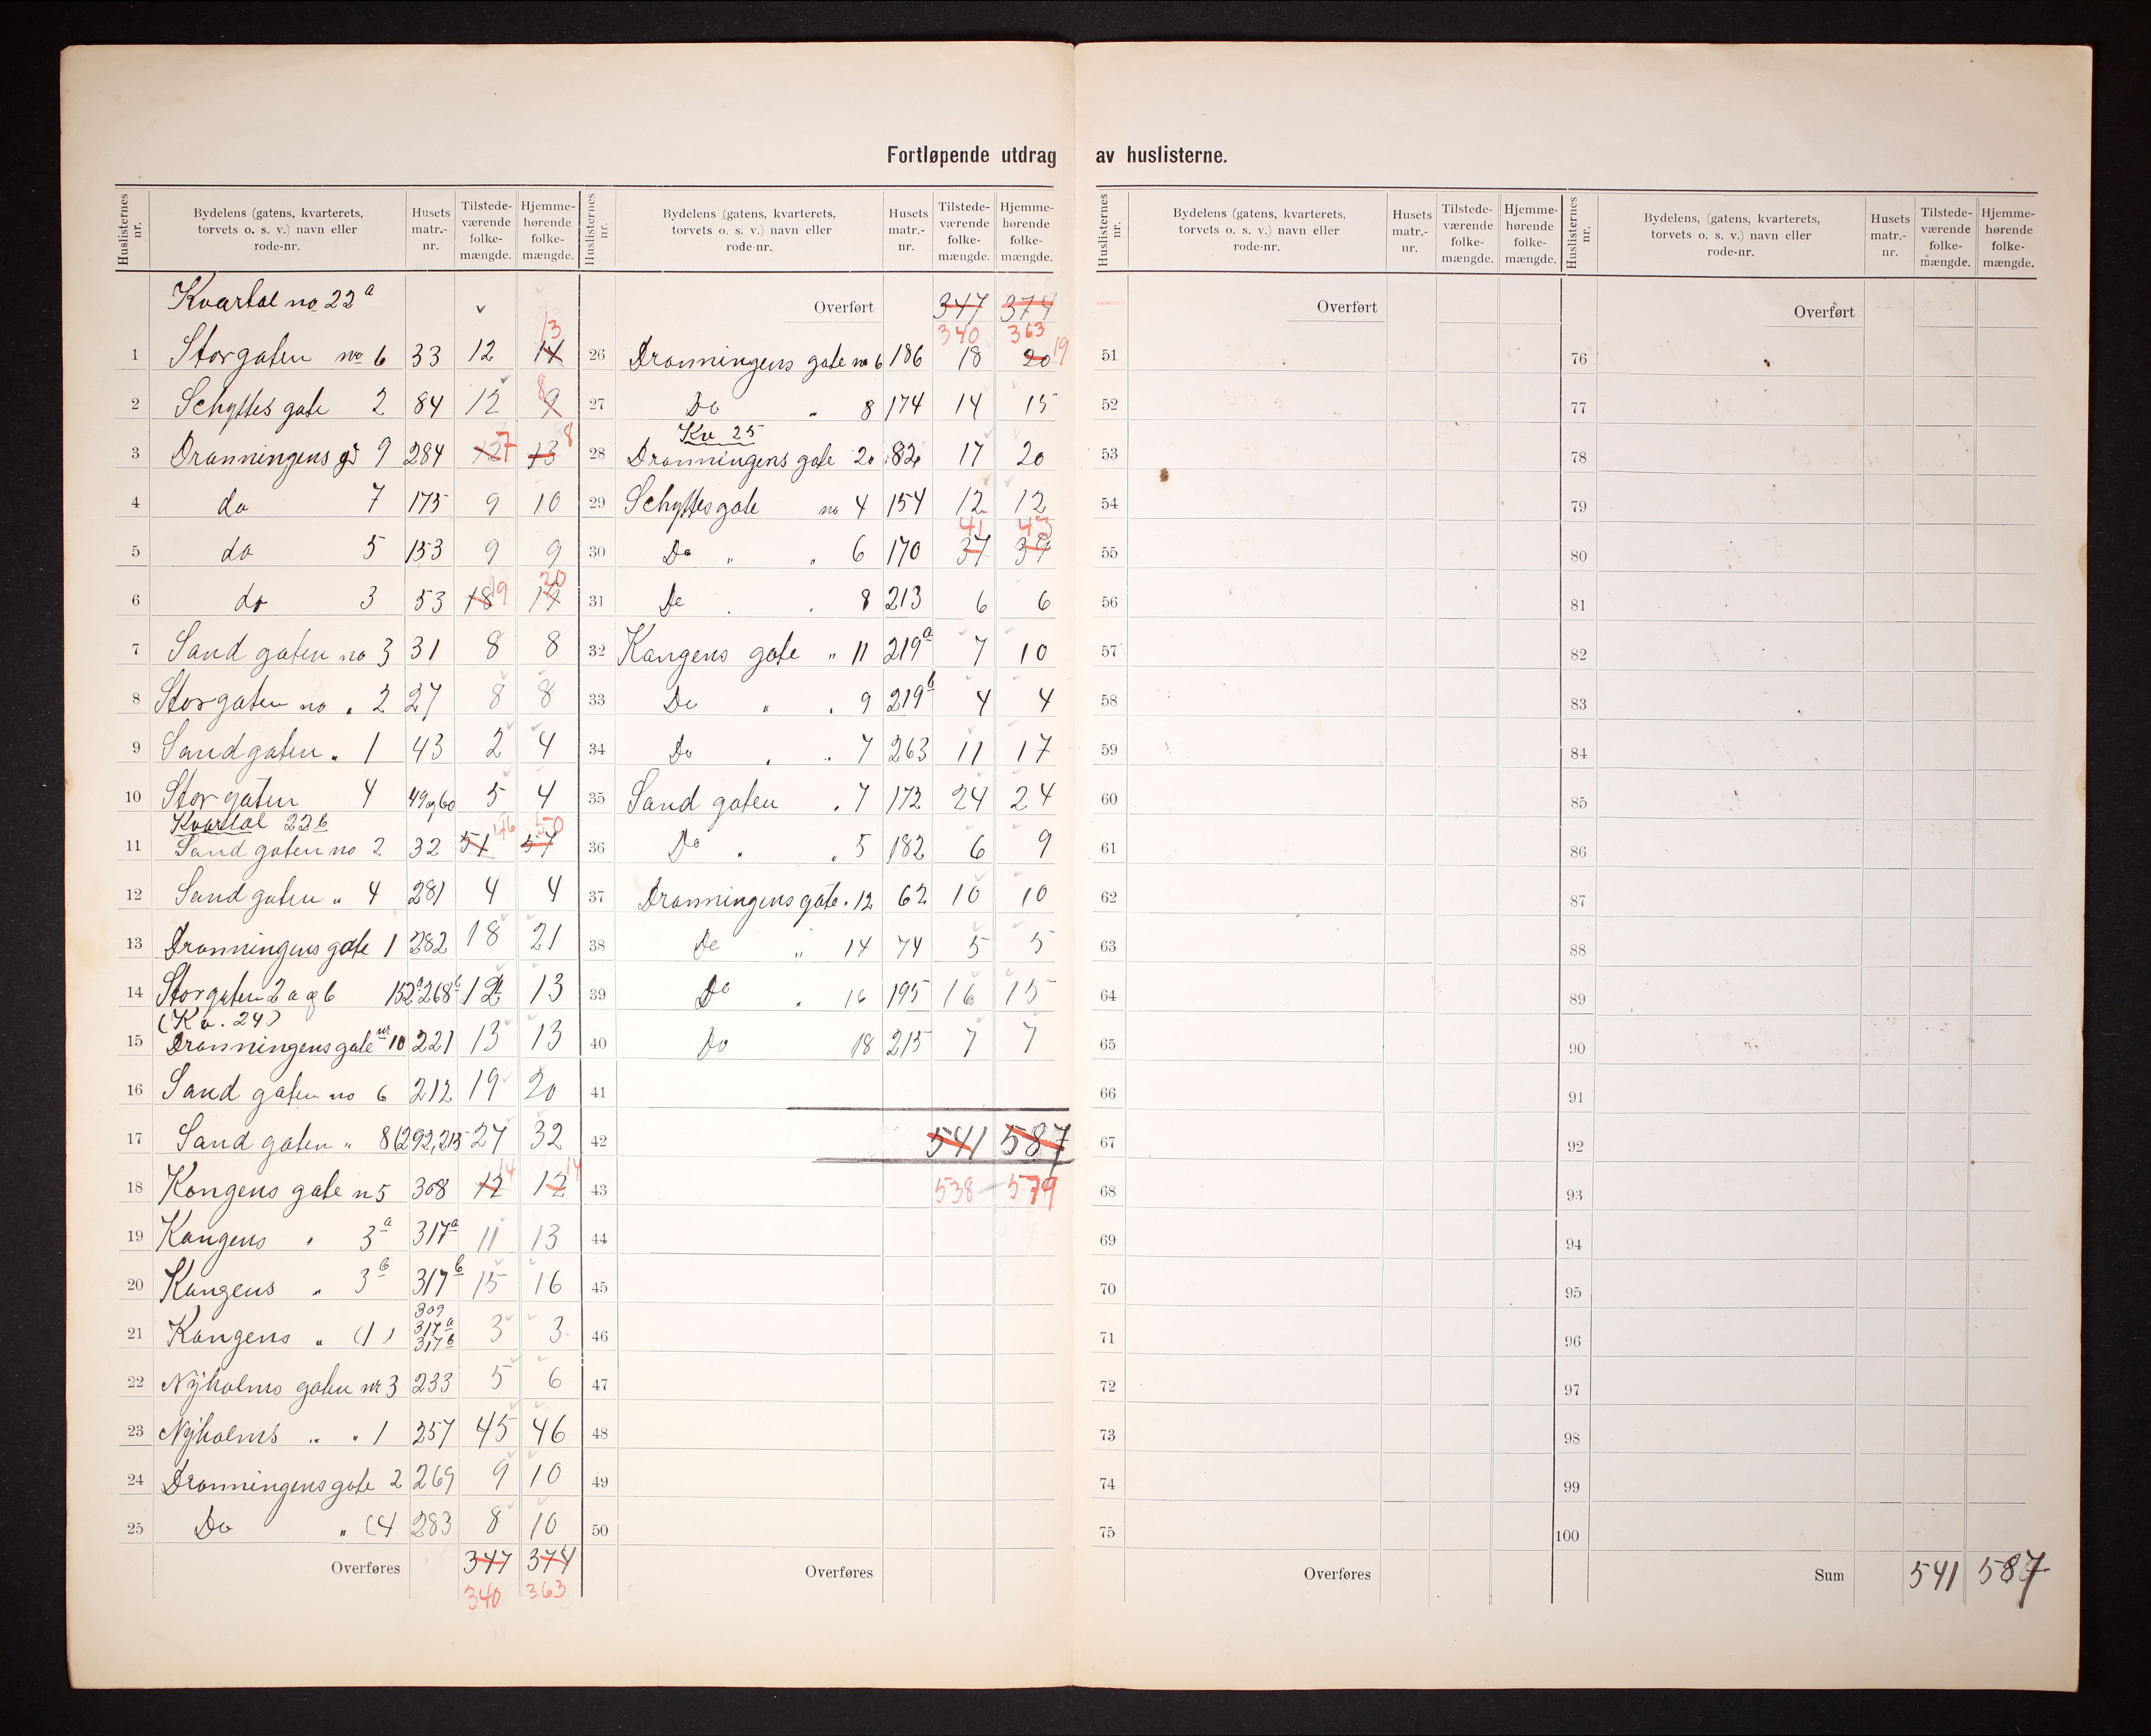 Fortløpende utdrag av huslisterne.
Huslisternes nr. | Bydelens (gatens, kvarterets, torvets o. s. v.) navn eller rode-nr. | Husets matr.-nr. | Tilstede-værende folke-mængde. | Hjemme-hørende folke-mængde.
Kvartal no 22a
1 Storgaten no 6 33 12 14 13
2 Schyttes gate 2 84 12 9 8
3 Dronningens g 9 284 12 7 13 8
4 do 7 175 9 10
5 do 5 153 9 9
6 do 3 53 18 19 19 20
7 Sand gaten no 3 31 8 8
8 Storgaten no . 2 27 8 8
9 Sandgaten „ 1 43 2 4
10 Storgaten 4 49og60 5 4
Kvartal 22b
11 Sand gaten no 2 32 51 46 57 50
12 Sand gaten „ 4 281 4 4
13 Dronningens gate 1 282 18 21
14 Storgaten 2 a og b 152a 268b 12 13
(Kv. 24)
15 Dronningens gate nr 10 221 13 13
16 Sand gaten no 6 212 19 20
17 Sand gaten „ 8 (292,215 27 32
18 Kongens gate n 5 308 12 14 12 14
19 Kongens „ 3a 317a 11 13
20 Kongens „ 3b 317b 15 16
21 Kongens „ (1) 309 317a 317b 3 3
22 Nyholms gaten nr 3 233 5 6
23 Nyholms „ „ 1 257 45 46
24 Dronningens gate 2 269 9 10
25 Do „ (4 283 8 10
Overføres 347 374
340 363
Huslisternes nr. | Bydelens (gatens, kvarterets, torvets o. s. v.) navn eller rode-nr. | Husets matr.-nr. | Tilstede-værende folke-mængde. | Hjemme-hørende folke-mængde.
Overført 347 374
340 363
26 Dronningens gate no 6 186 18 20 19
27 Do „ 8 174 14 15
Kv 25
28 Dronningens gate 20 82 17 20
29 Schyttes gate no 4 154 12 12
30 Do „ „ 6 170 37 41 39 43
31 Do . . 8 213 6 6
32 Kongens gate „ 11 219a 7 10
33 Do „ . 9 219b 4 4
34 Do . „ 7 263 11 17
35 Sand gaten . 7 172 24 24
36 Do . . 5 182 6 9
37 Dronningens gate . 12 62 10 10
38 Do „ 14 74 5 5
39 Do . 16 195 16 15
40 Do 18 215 7 7
41
42 541 587
43 538 - 579
44
45
46
47
48
49
50
Overføres
Huslisternes nr. | Bydelens (gatens, kvarterets, torvets o. s. v.) navn eller rode-nr. | Husets matr.-nr. | Tilstede-værende folke-mængde. | Hjemme-hørende folke-mængde.
Overført
51
52
53
54
55
56
57
58
59
60
61
62
63
64
65
66
67
68
69
70
71
72
73
74
75
Overføres
Huslisternes nr. | Bydelens, (gatens, kvarterets, torvets o. s. v.) navn eller rode-nr. | Husets matr.-nr. | Tilstede-værende folke-mængde. | Hjemme-hørende folke-mængde.
Overført
76
77
78
79
80
81
82
83
84
85
86
87
88
89
90
91
92
93
94
95
96
97
98
99
100
Sum 541 587